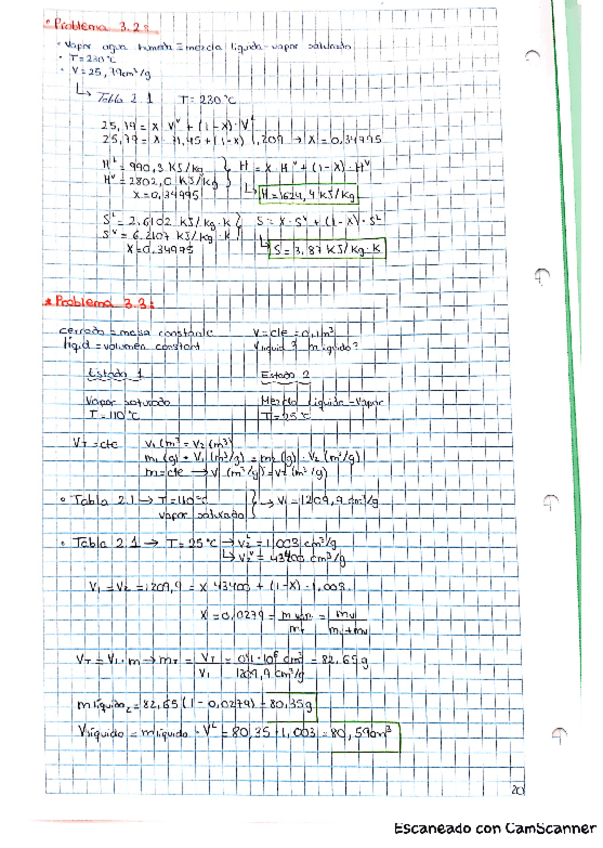 * Problema 3.2:
· Vapor agua humeda = mezcla liquida-vapor saturado
· T = 230°C
· V = 25,79 cm³/g
↳ Tabla 2.1 T = 230°C
25,79 = X · Vᵛ + (1-X) · Vᴸ
25,79 = X · 71,45 + (1-X) 1,209 → X = 0,34995
Hᴸ = 990,3 KJ/Kg } H = X · Hᵛ + (1-X) · Hᴸ
Hᵛ = 2802,0 KJ/Kg
X = 0,34995 ↳ H = 1624,4 KJ/Kg
Sᴸ = 2,6102 KJ/Kg·K } S = X · Sᵛ + (1-X) · Sᴸ
Sᵛ = 6,2107 KJ/Kg·K
X = 0,34995 ↳ S = 3,87 KJ/Kg·K
* Problema 3.3:
cerrado = masa constante V = cte = 0,1 m³
rigid = volumen constant V liquid? m liquido?
Estado 1 Estado 2
Vapor saturado Mezcla liquida-vapor
T = 110°C T = 25°C
V_T = cte V₁ (m³) = V₂ (m³)
m₁ (g) · V₁ (m³/g) = m₂ (g) · V₂ (m³/g)
m = cte → V₁ (m³/g) = V₂ (m³/g)
· Tabla 2.1 → T = 110°C } → V₁ = 1209,9 cm³/g
vapor saturado
· Tabla 2.1 → T = 25°C → V₂ᴸ = 1,003 cm³/g
↳ V₂ᵛ = 43400 cm³/g
V₁ = V₂ = 1209,9 = X · 43400 + (1-X) · 1,003
X = 0,0279 = m vap. / m_T = m_V / m_L + m_V
V_T = V₁ · m → m_T = V_T / V₁ = 0,1 · 10⁶ cm³ / 1209,9 cm³/g = 82,65 g
m líquido₂ = 82,65 (1 - 0,0279) = 80,35 g
V líquido = m líquido · Vᴸ = 80,35 · 1,003 = 80,59 cm³
20
Escaneado con CamScanner